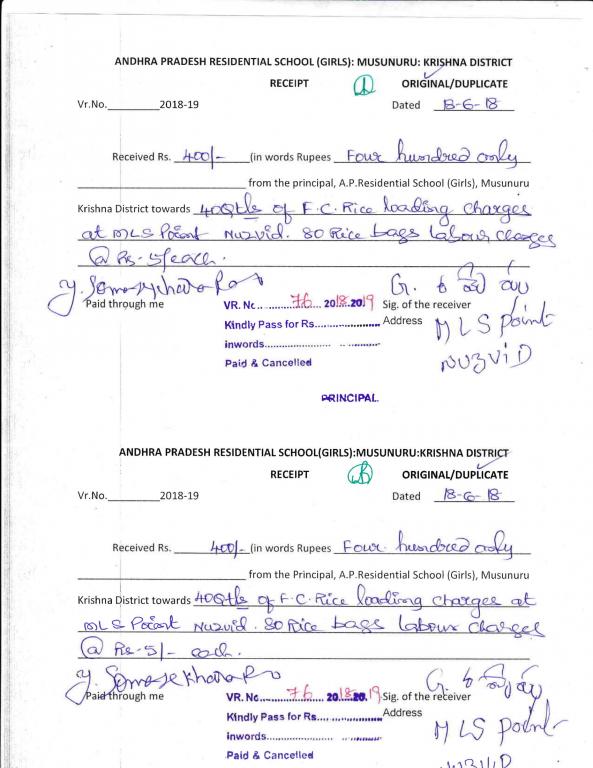 ANDHRA PRADESH RESIDENTIAL SCHOOL (GIRLS): MUSUNURU: KRISHNA DISTRICT
RECEIPT ORIGINAL/DUPLICATE
Vr.No.________2018-19 Dated 18-6-18
Received Rs. 400/- (in words Rupees Four hundred only
from the principal, A.P.Residential School (Girls), Musunuru
Krishna District towards 40Qtls of F.C. Rice loading charges
at MLS Point Nuzvid. 80 Rice bags labour charges
@ Rs. 5/each.
Paid through me
VR. Nc.. 76 2018.2019 Sig. of the receiver
Kindly Pass for Rs.................... Address MLS point
inwords.................. ........... NUZVID
Paid & Cancelled
PRINCIPAL.
ANDHRA PRADESH RESIDENTIAL SCHOOL(GIRLS):MUSUNURU:KRISHNA DISTRICT
RECEIPT ORIGINAL/DUPLICATE
Vr.No.________2018-19 Dated 18-6-18
Received Rs. 400/- (in words Rupees Four hundred only
from the Principal, A.P.Residential School (Girls), Musunuru
Krishna District towards 40Qtls of F.C. Rice loading charges at
MLS Point Nuzvid. 80 Rice bags labour charges
@ Rs-5/- each.
Y. Somasekhara Ra
Paid through me VR. Nc.. 76 2018.2019 Sig. of the receiver
Kindly Pass for Rs.................... Address
inwords.................. ........... MLS point
Paid & Cancelled NUZVID